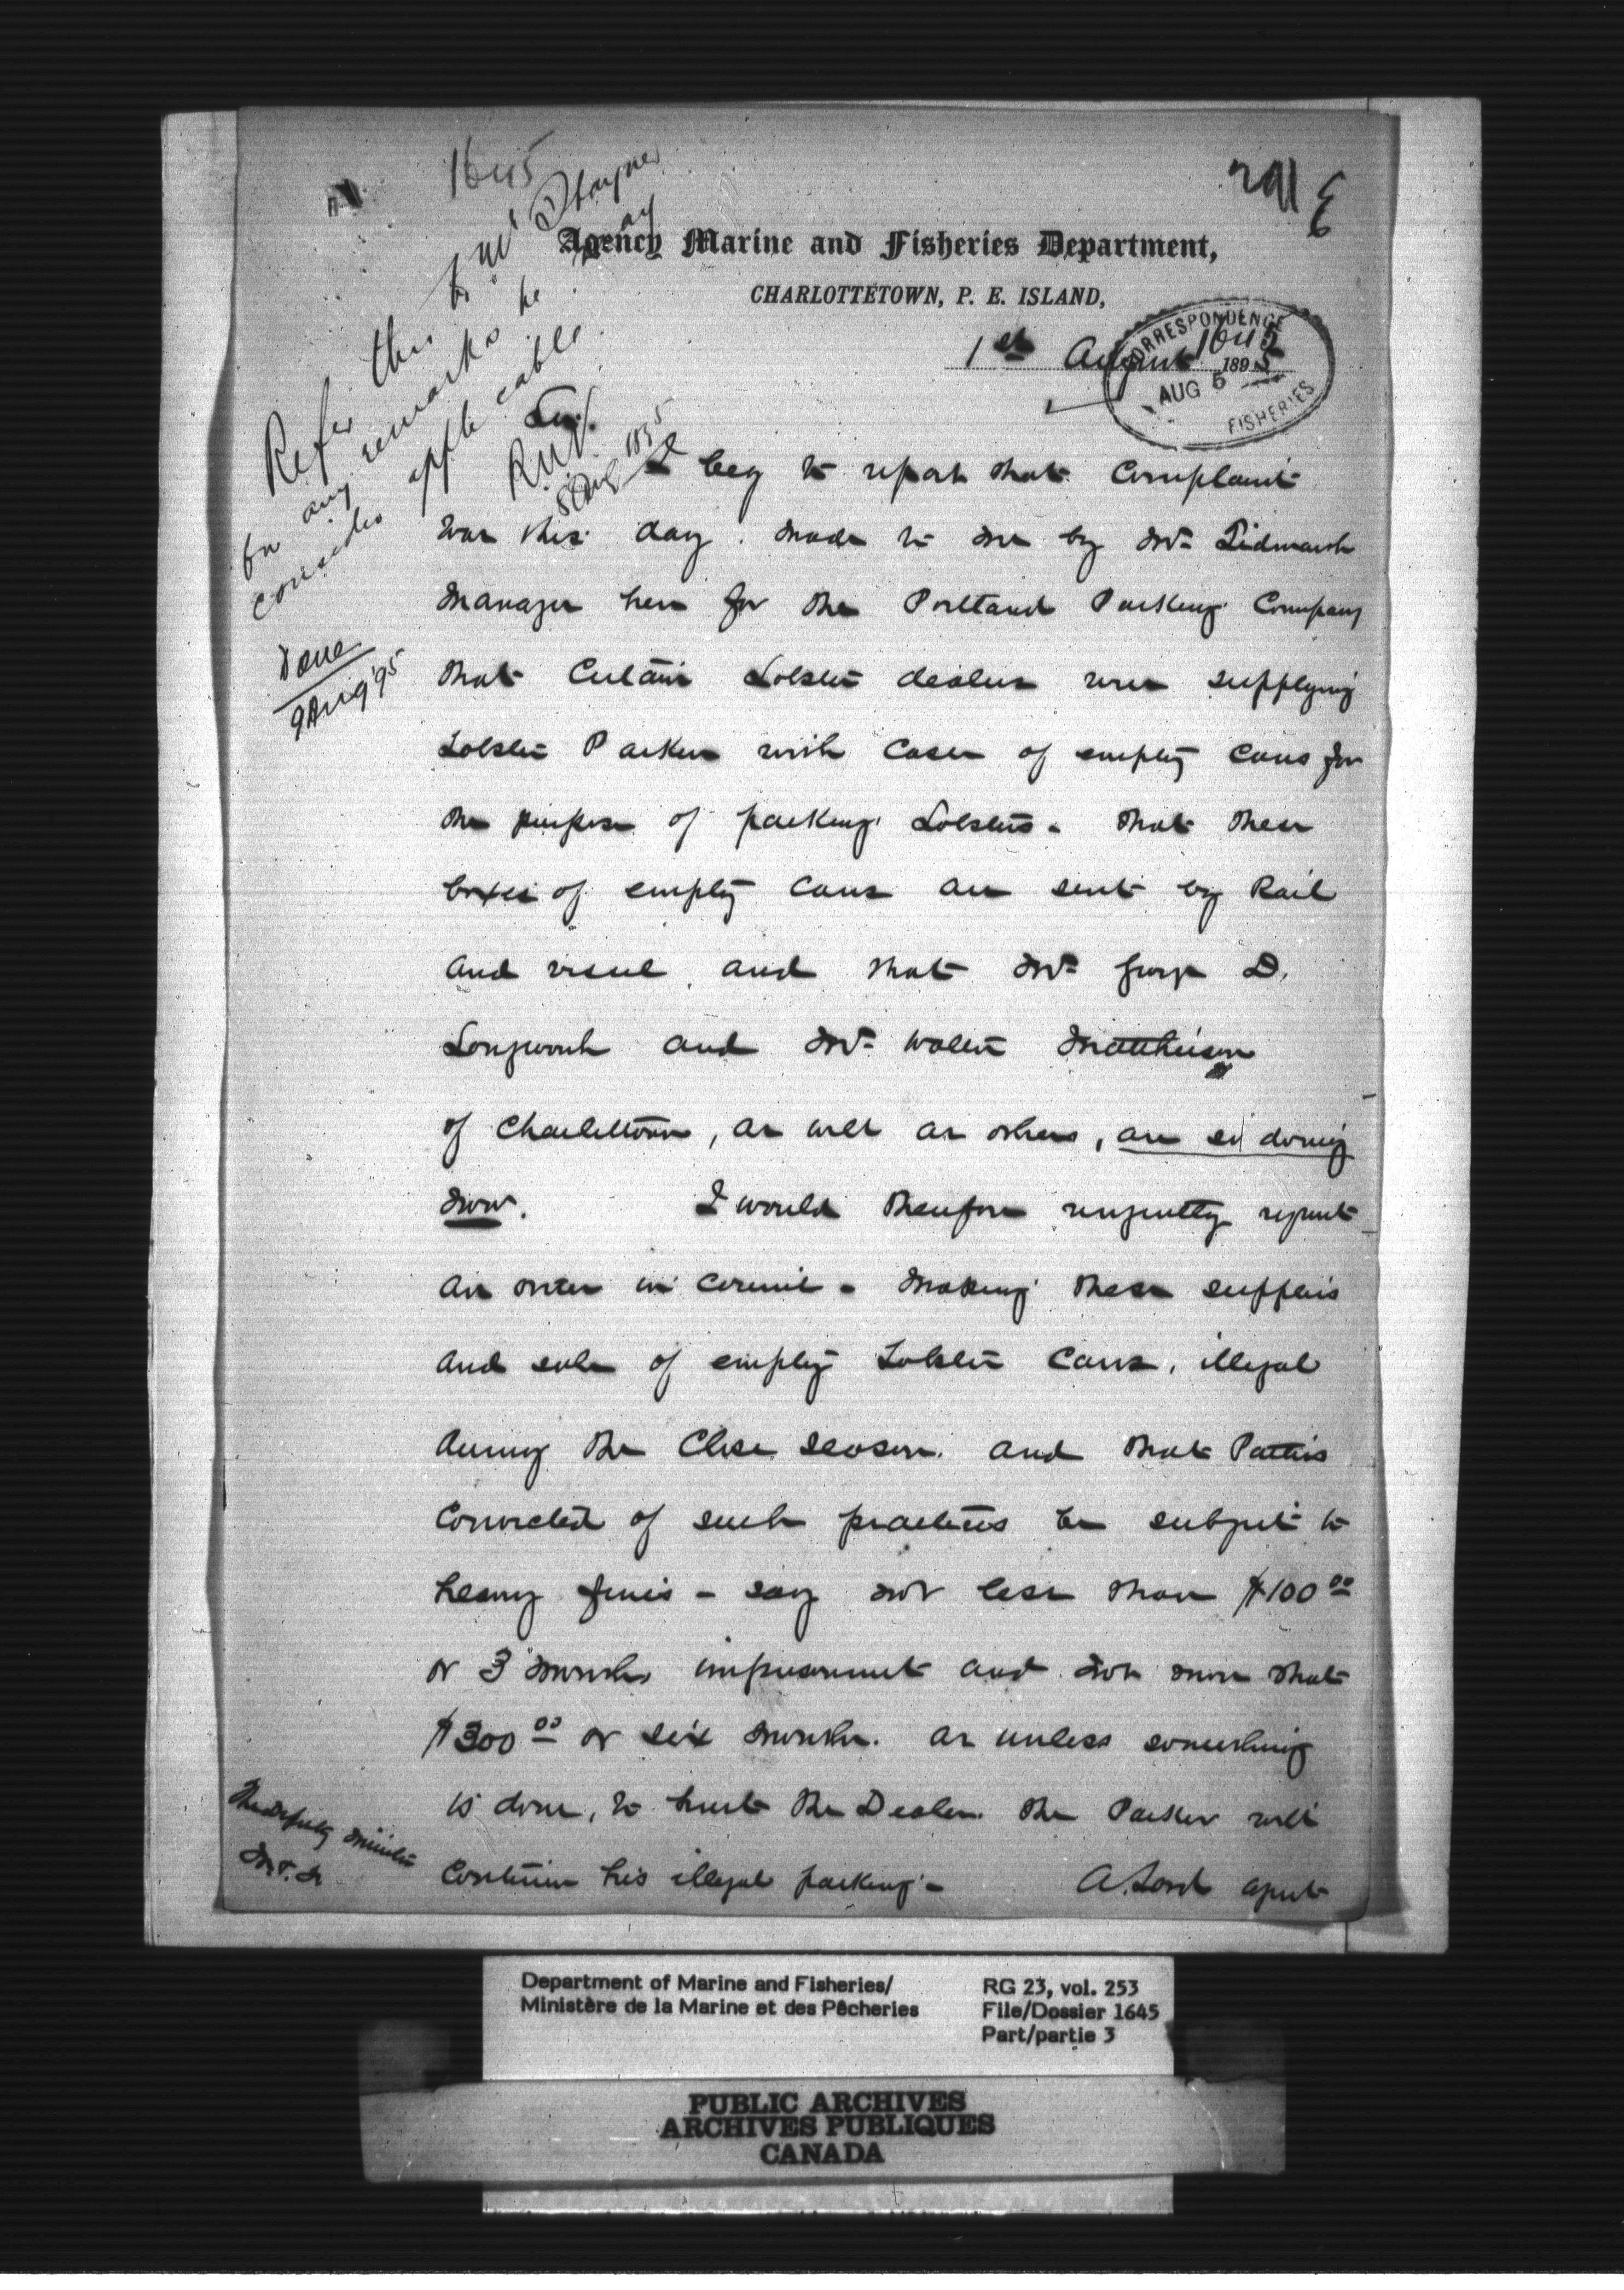 1645
291 E
Agency Marine and Fisheries Department,
CHARLOTTETOWN, P. E. ISLAND,
1st August 1895
CORRESPONDENCE
1645
AUG 5
FISHERIES
Refer this to Mr
for any remarks he may
consider applicable.
8 Aug 1895
Done
9 Aug '95
Sir.
I beg to report that Complaint
was this day. made to me by Mr Tidmarsh
Manager here for the Portland Packing Company
that Certain Lobster dealers were supplying
Lobster Packers with Cases of empty Cans for
the purpose of packing Lobsters. That these
boxes of empty Cans are sent by Rail
and vessel, and that Mr George D.
Longworth and Mr Walter Matthewson
of Charlottetown, as well as others, are so doing
now. I would therefore urgently request
an order in Council - making these supplies
and sale of empty Lobster Cans, illegal
during the Close season. and that Parties
Convicted of such practices be subject to
heavy fines - say not less than $100 00
or 3 months imprisonment and not more that
$300 00 or six months. as unless something
is done, to hurt the Dealer. the Packer will
Continue his illegal packing -
A. Lord agent
The Deputy Minister
M. & F.
Department of Marine and Fisheries/
Ministère de la Marine et des Pêcheries
RG 23, vol. 253
File/Dossier 1645
Part/partie 3
PUBLIC ARCHIVES
ARCHIVES PUBLIQUES
CANADA